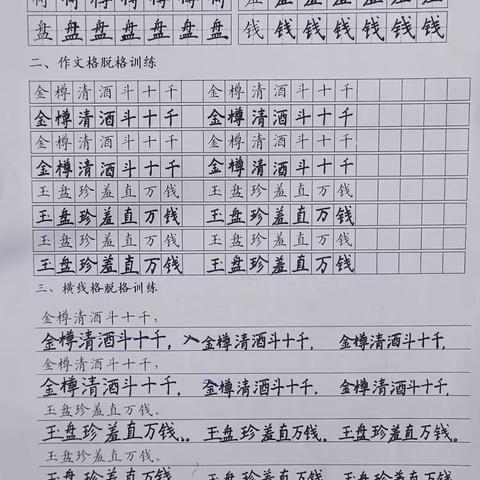 盘盘盘盘盘盘盘 钱钱钱钱钱钱钱
二、作文格脱格训练
金樽清酒斗十千 金樽清酒斗十千
金樽清酒斗十千 金樽清酒斗十千
金樽清酒斗十千 金樽清酒斗十千
金樽清酒斗十千 金樽清酒斗十千
玉盘珍羞直万钱 玉盘珍羞直万钱
玉盘珍羞直万钱 玉盘珍羞直万钱
玉盘珍羞直万钱 玉盘珍羞直万钱
玉盘珍羞直万钱 玉盘珍羞直万钱
三、横线格脱格训练
金樽清酒斗十千，
金樽清酒斗十千， 金樽清酒斗十千， 金樽清酒斗十千，
金樽清酒斗十千，
金樽清酒斗十千， 金樽清酒斗十千， 金樽清酒斗十千，
玉盘珍羞直万钱。
玉盘珍羞直万钱。 玉盘珍羞直万钱。 玉盘珍羞直万钱。
玉盘珍羞直万钱。
玉盘珍羞直万钱 玉盘珍羞直万钱 玉盘珍羞直万钱